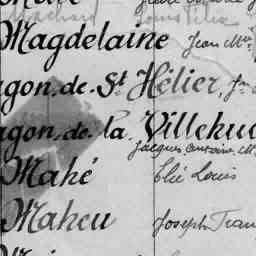 Machard Louis Félix
Magdelaine Jean Mie
agon de St Hélier, Jn
agon de la Villehu
Jacques Antoine M
Mahé Elie Louis
Maheu Joseph Fran